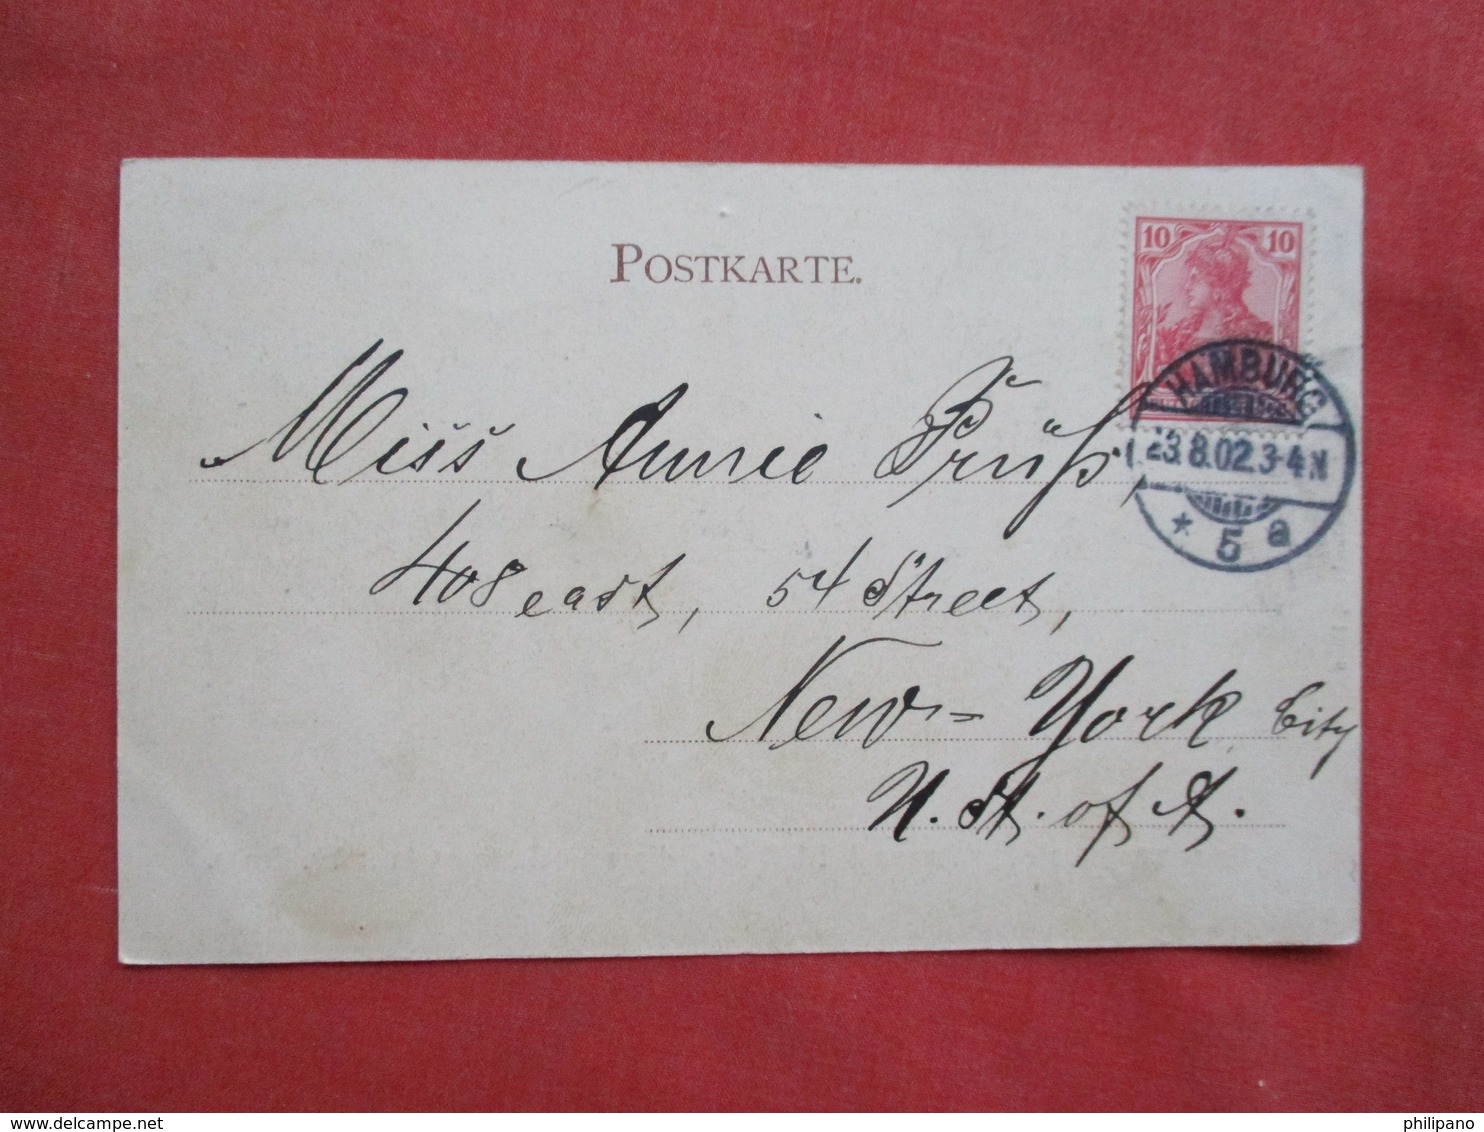 POSTKARTE.
10 10
HAMBURG
23.8.02.3-4N
* 5 a
Miss Annie Prüß,
408 east, 54 Street,
New-York City
U. St. of A.
www.delcampe.net
philipano